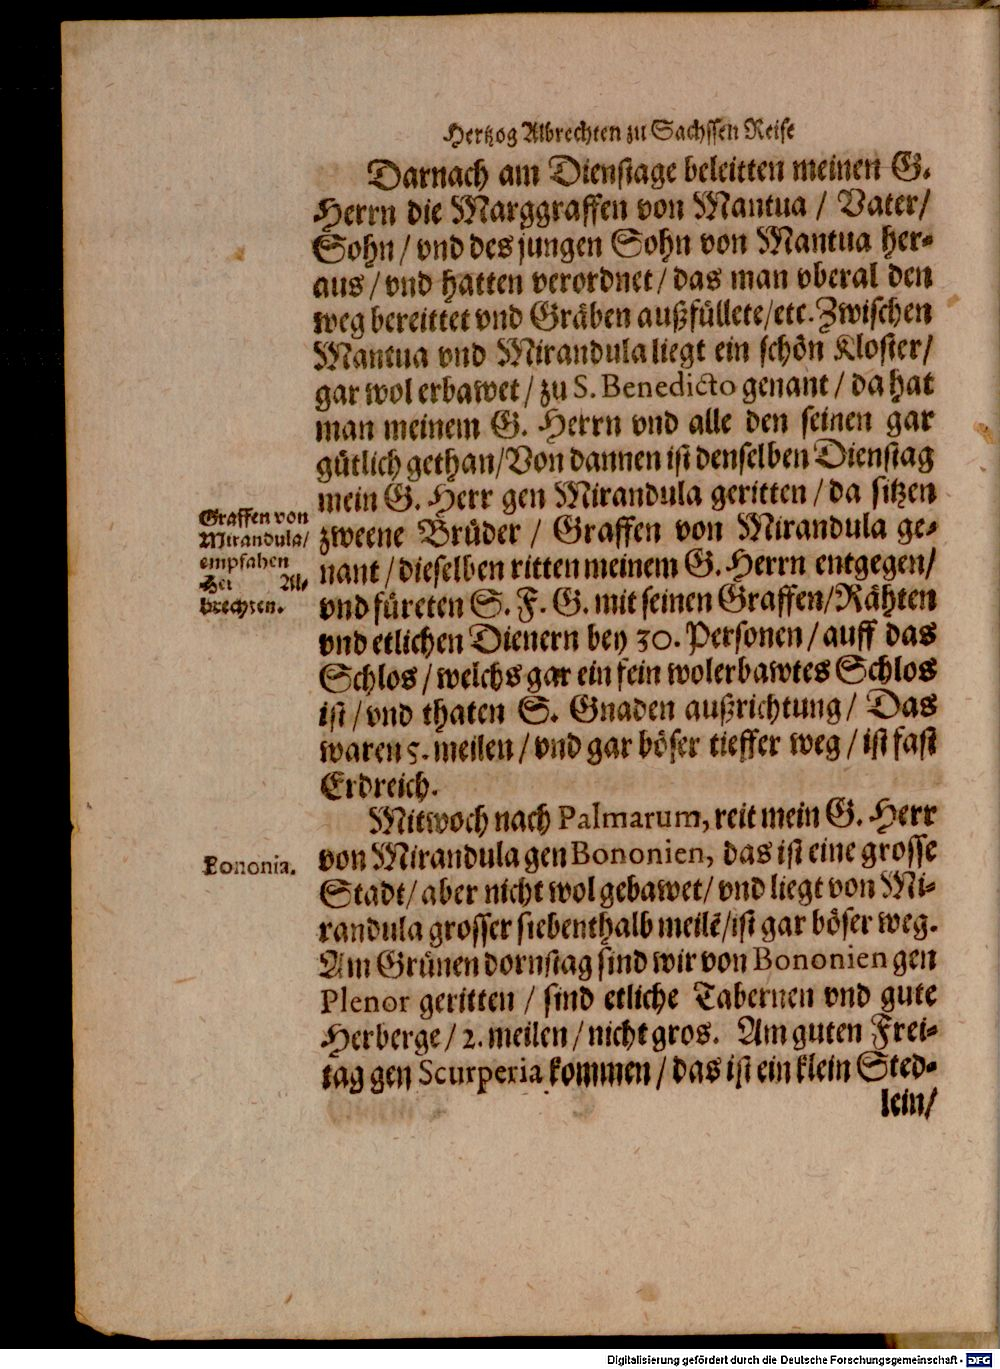 Hertzog Albrechten zu Sachssen Reise
Darnach am Dienstage beleitten meinen G.
Herrn die Marggraffen von Mantua / Vater/
Sohn / vnd des jungen Sohn von Mantua her-
aus / vnd hatten verordnet / das man vberal den
weg bereittet vnd Gräben außfüllete/etc. Zwischen
Mantua vnd Mirandula liegt ein schön Kloster/
gar wol erbawet / zu S. Benedicto genant / da hat
man meinem G. Herrn vnd alle den seinen gar
gütlich gethan/Von dannen ist denselben Dienstag
mein G. Herr gen Mirandula geritten / da sitzen
zweene Brüder / Graffen von Mirandula ge-
nant / dieselben ritten meinem G. Herrn entgegen/
vnd füreten S. F. G. mit seinen Graffen/Rähten
vnd etlichen Dienern bey 30. Personen / auff das
Schlos / welchs gar ein fein wolerbawtes Schlos
ist / vnd thaten S. Gnaden außrichtung / Das
waren 5. meilen / vnd gar böser tieffer weg / ist fast
Erdreich.
Graffen von
Mirandula/
empfahen
Her Al-
brechten.
Mitwoch nach Palmarum, reit mein G. Herr
von Mirandula gen Bononien, das ist eine grosse
Stadt/ aber nicht wol gebawet/ vnd liegt von Mi-
randula grosser siebenthalb meilē/ist gar böser weg.
Am Grünen dornstag sind wir von Bononien gen
Plenor geritten / sind etliche Tabernen vnd gute
Herberge / 2. meilen / nicht gros. Am guten Frei-
tag gen Scurperia kommen / das ist ein klein Sted-
lein/
Bononia.
Digitalisierung gefördert durch die Deutsche Forschungsgemeinschaft - DFG